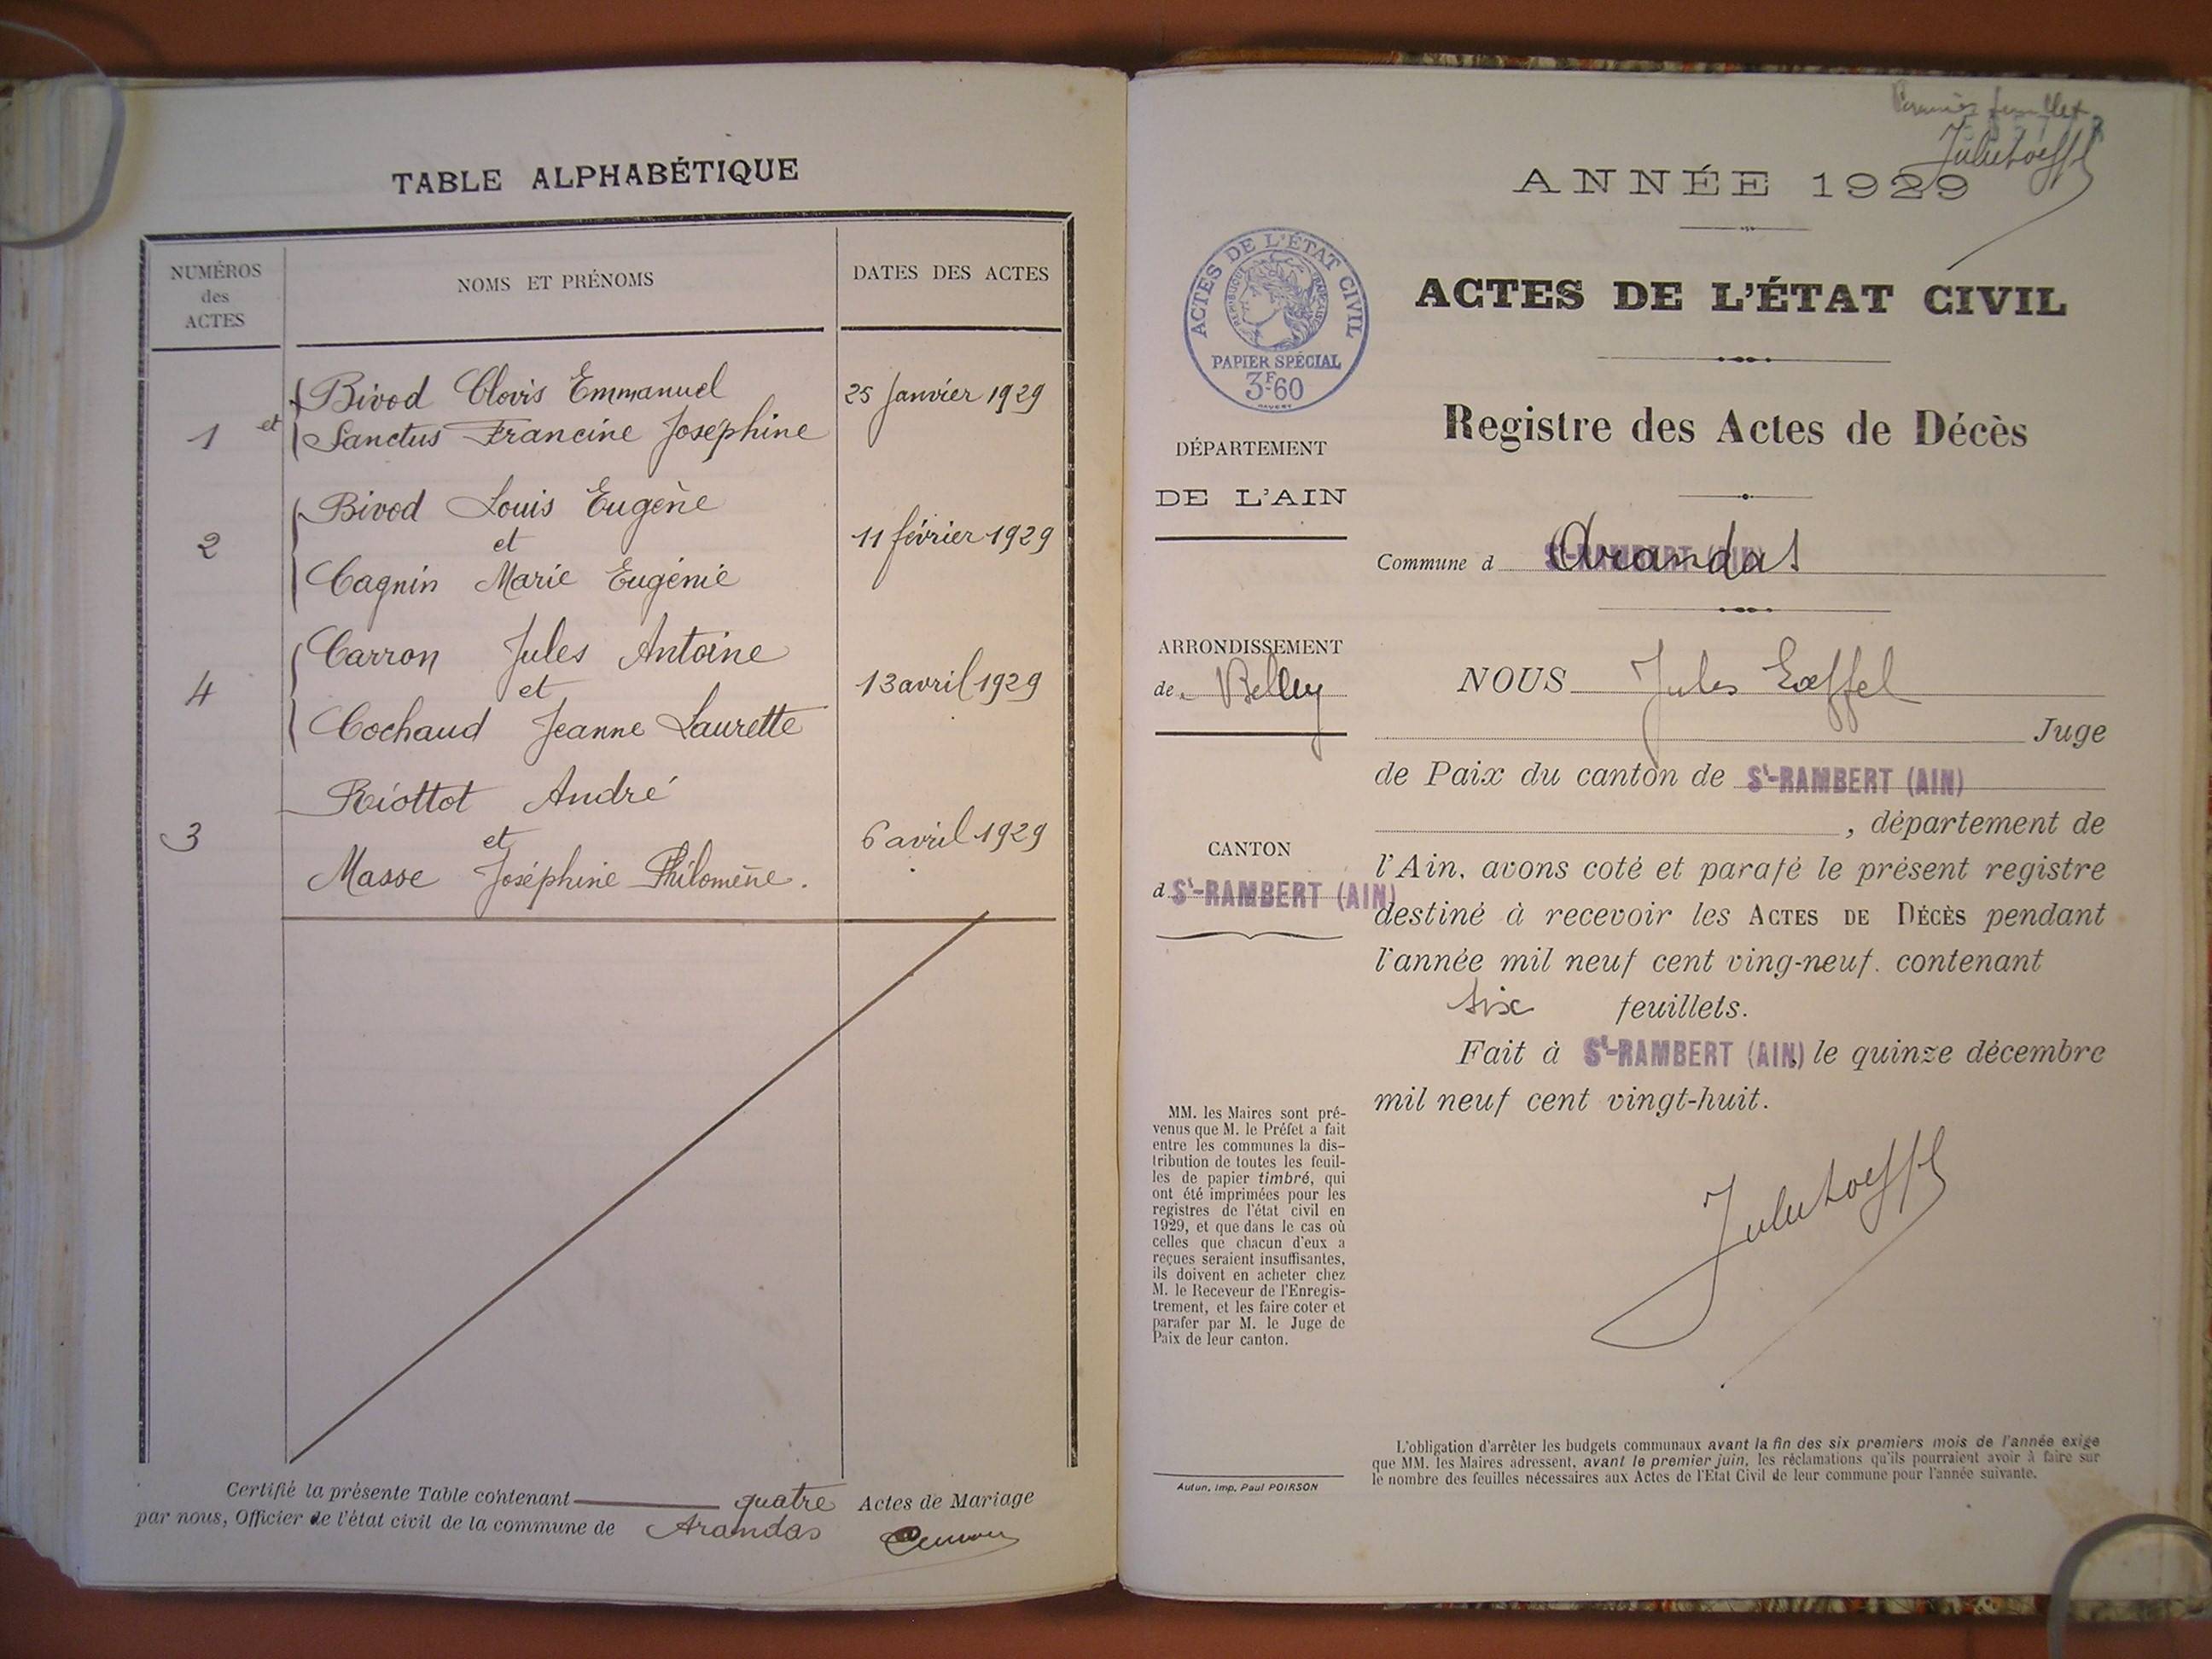 TABLE ALPHABÉTIQUE
NUMÉROS
des
ACTES
NOMS ET PRÉNOMS
DATES DES ACTES
Bivod Clovis Emmanuel
25 Janvier 1929
1 et
Sanctus Francine Josephine
Bivod Louis Eugène
2
et
11 février 1929
Cagnin Marie Eugénie
Carron Jules Antoine
4
et
13 avril 1929
Cochaud Jeanne Laurette
Riottot André
3
et
6 avril 1929
Masse Joséphine Philomène.
Certifié la présente Table contenant quatre Actes de Mariage
par nous, Officier de l'état civil de la commune de Arandas
Premier feuillet
ANNÉE 1929
ACTES DE L'ÉTAT CIVIL
RÉPUBLIQUE FRANÇAISE
PAPIER SPÉCIAL
3F.60
DÉPARTEMENT
DE L'AIN
ARRONDISSEMENT
de Belley
CANTON
d St-RAMBERT (AIN)
MM. les Maires sont pré-
venus que M. le Préfet a fait
entre les communes la dis-
tribution de toutes les feuil-
les de papier timbré, qui
ont été imprimées pour les
registres de l'état civil en
1929, et que dans le cas où
celles que chacun d'eux a
reçues seraient insuffisantes,
ils doivent en acheter chez
M. le Receveur de l'Enregis-
trement, et les faire coter et
parafer par M. le Juge de
Paix de leur canton.
Autun, Imp. Paul POIRSON
ACTES DE L'ÉTAT CIVIL
Registre des Actes de Décès
Commune d St-RAMBERT (AIN) Arandas
NOUS Jules Loeffel
Juge
de Paix du canton de St-RAMBERT (AIN)
, département de
l'Ain, avons coté et parafé le présent registre
destiné à recevoir les ACTES DE DÉCÈS pendant
l'année mil neuf cent ving-neuf. contenant
six feuillets.
Fait à St-RAMBERT (AIN) le quinze décembre
mil neuf cent vingt-huit.
L'obligation d'arrêter les budgets communaux avant la fin des six premiers mois de l'année exige
que MM. les Maires adressent, avant le premier juin, les réclamations qu'ils pourraient avoir à faire sur
le nombre des feuilles nécessaires aux Actes de l'Etat Civil de leur commune pour l'année suivante.